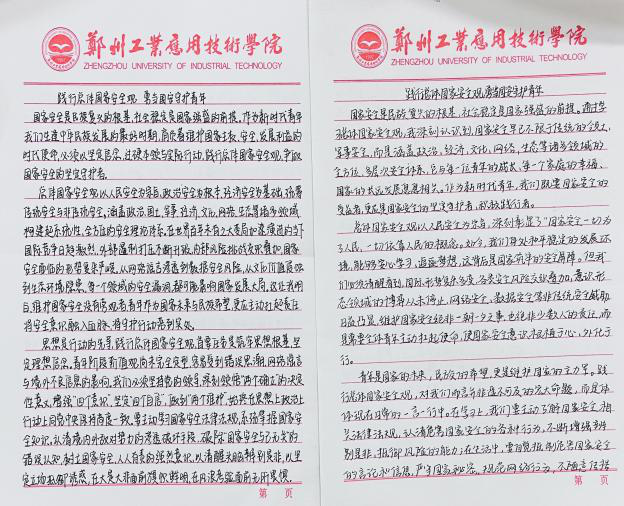 鄭州工業應用技術學院
ZHENGZHOU UNIVERSITY OF INDUSTRIAL TECHNOLOGY
践行总体国家安全观 勇当国安守护青年
国家安全是民族复兴的根基,社会稳定是国家强盛的前提。作为新时代青年
我们生逢中华民族发展的最好时期,肩负着维护国家主权、安全、发展利益的
时代使命,必须以坚定信念、过硬本领与实际行动,践行总体国家安全观,争做
国家安全的坚定守护者。
总体国家安全观以人民安全为宗旨,政治安全为根本,经济安全为基础,统筹
传统安全与非传统安全,涵盖政治、国土、军事、经济、文化、网络、生态等多领域,
构建起系统性、全方位的安全理论体系。
国际竞争日趋激烈,外部遏制打压不断升级,内部风险挑战交织叠加,国家
安全面临的形势复杂严峻,从网络谣言渗透到数据安全风险,从文化价值侵蚀
到生态环境隐患,每一个领域的安全漏洞,都可能影响国家发展大局。这让我明
白,维护国家安全没有旁观者,青年作为国家未来与民族希望,更应主动扛起责任
将安全意识融入血脉,将守护行动落到实处。
思想是行动的先导,践行总体国家安全观,首要任务是筑牢思想根基,坚
定理想信念。青年阶段价值观尚未完全定型,容易受到错误思潮、网络谣言
与境外不良信息的影响,我们必须坚持党的领导,深刻领悟“两个确立”的决定
性意义,增强“四个意识”、坚定“四个自信”、做到“两个维护”,始终在思想上政治上
行动上同党中央保持高度一致。要主动学习国家安全法律法规,系统掌握国家安全
知识,认清境内外敌对势力的渗透破坏手段,破除“国家安全与己无关”的
错误认知,树立国家安全、人人有责的强烈意识,以清醒头脑辨别是非,以坚
定立场抵御诱惑,在大是大非面前旗帜鲜明,在风浪考验面前无所畏惧。
第 页
鄭州工業應用技術學院
ZHENGZHOU UNIVERSITY OF INDUSTRIAL TECHNOLOGY
践行总体国家安全观,勇当国安守护青年
国家安全是民族复兴的根基,社会稳定是国家强盛的前提。通过学
习总体国家安全观,我深刻认识到,国家安全早已不限于传统的领土、
军事安全,而是涵盖政治、经济、文化、网络、生态等诸多领域的
全方位、多层次安全体系,它与每一位青年的成长、每一个家庭的幸福、
国家的长远发展息息相关。作为新时代青年,我们既是国家安全的
受益者,更应是国家安全的坚定守护者、积极践行者。
总体国家安全观以人民安全为宗旨,深刻彰显了“国家安全一切为
了人民、一切依靠人民”的理念。如今,我们身处和平稳定的发展环
境,能够安心学习、追逐梦想,这背后是国家筑牢的安全屏障。但我
们也须清醒看到,国际形势复杂多变,各类安全风险交织叠加,意识形
态领域的博弈从未停止,网络安全、数据安全等非传统安全威胁
日益凸显,维护国家安全绝非一朝一夕之事,也绝非少数人的责任,而
是需要全体青年主动扛起使命,使国家安全意识根植于心、外化于
行。
青年是国家的未来,民族的希望,更是维护国家安全的主力军。践
行总体国家安全观,对我们而言并非遥不可及的宏大命题,而是体
体现在日常的一言一行中。在学习上,我们要主动了解国家安全相
关法律法规,认清危害国家安全的各种行为,不断增强辨
别是非、抵御风险的能力;在生活中,要自觉抵制危害国家安全
的言论和信息,严守国家秘密,规范网络行为,不随意
第 页